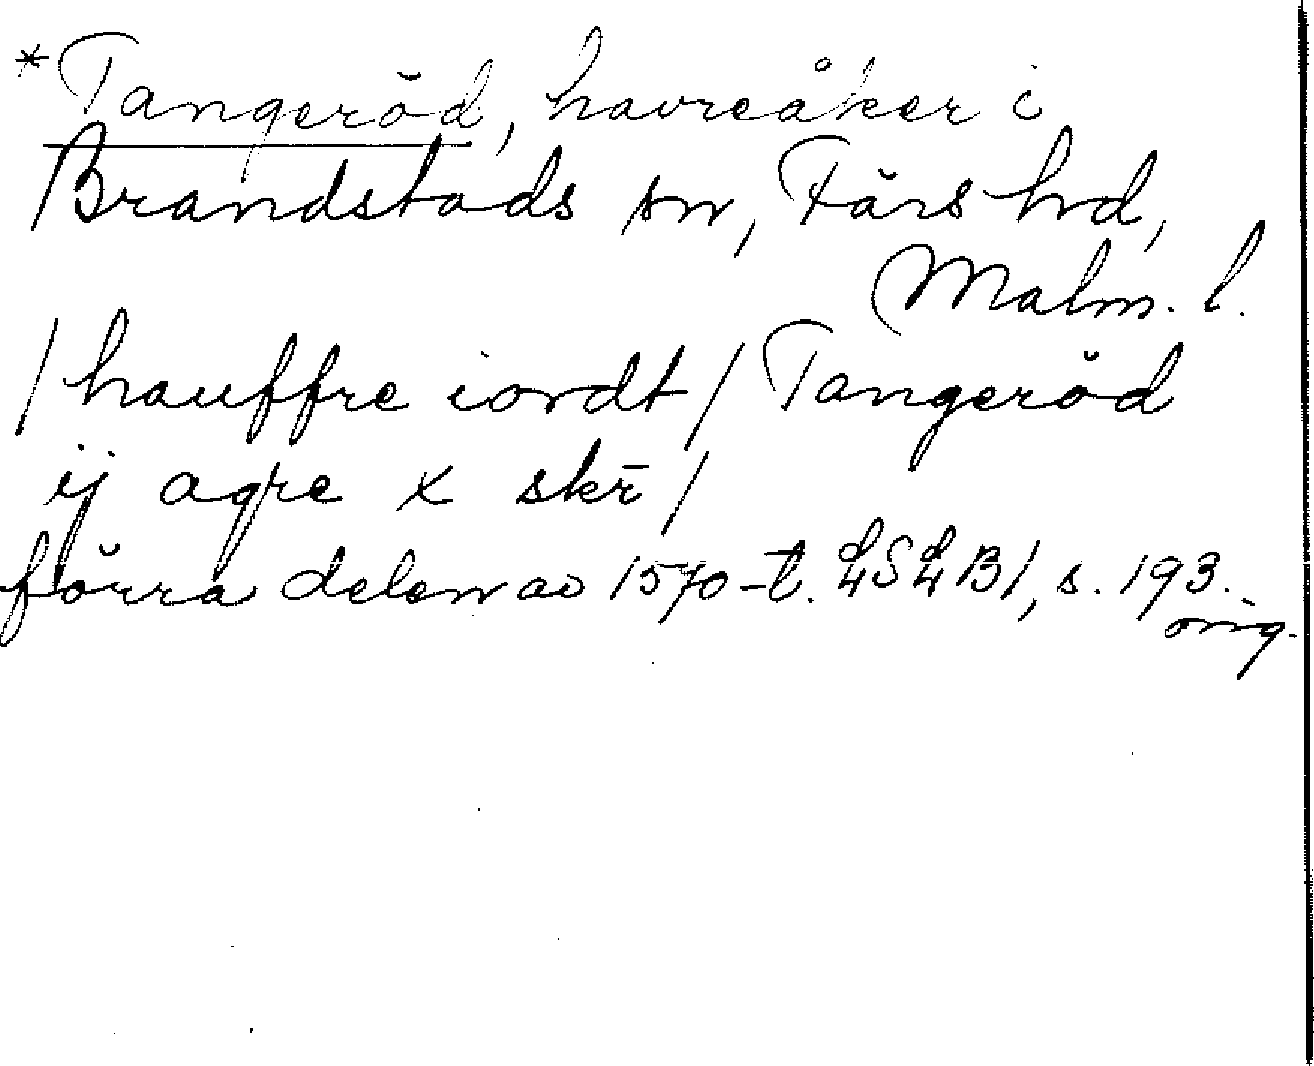 *Tangeröd, havreåker i
Brandstads sn, Färs hd,
Malm. l.
/hauffre iordt/ Tangeröd
ij agre x skr̄/
förra delen av 1570-t. LSLB1, s. 193.
orig.